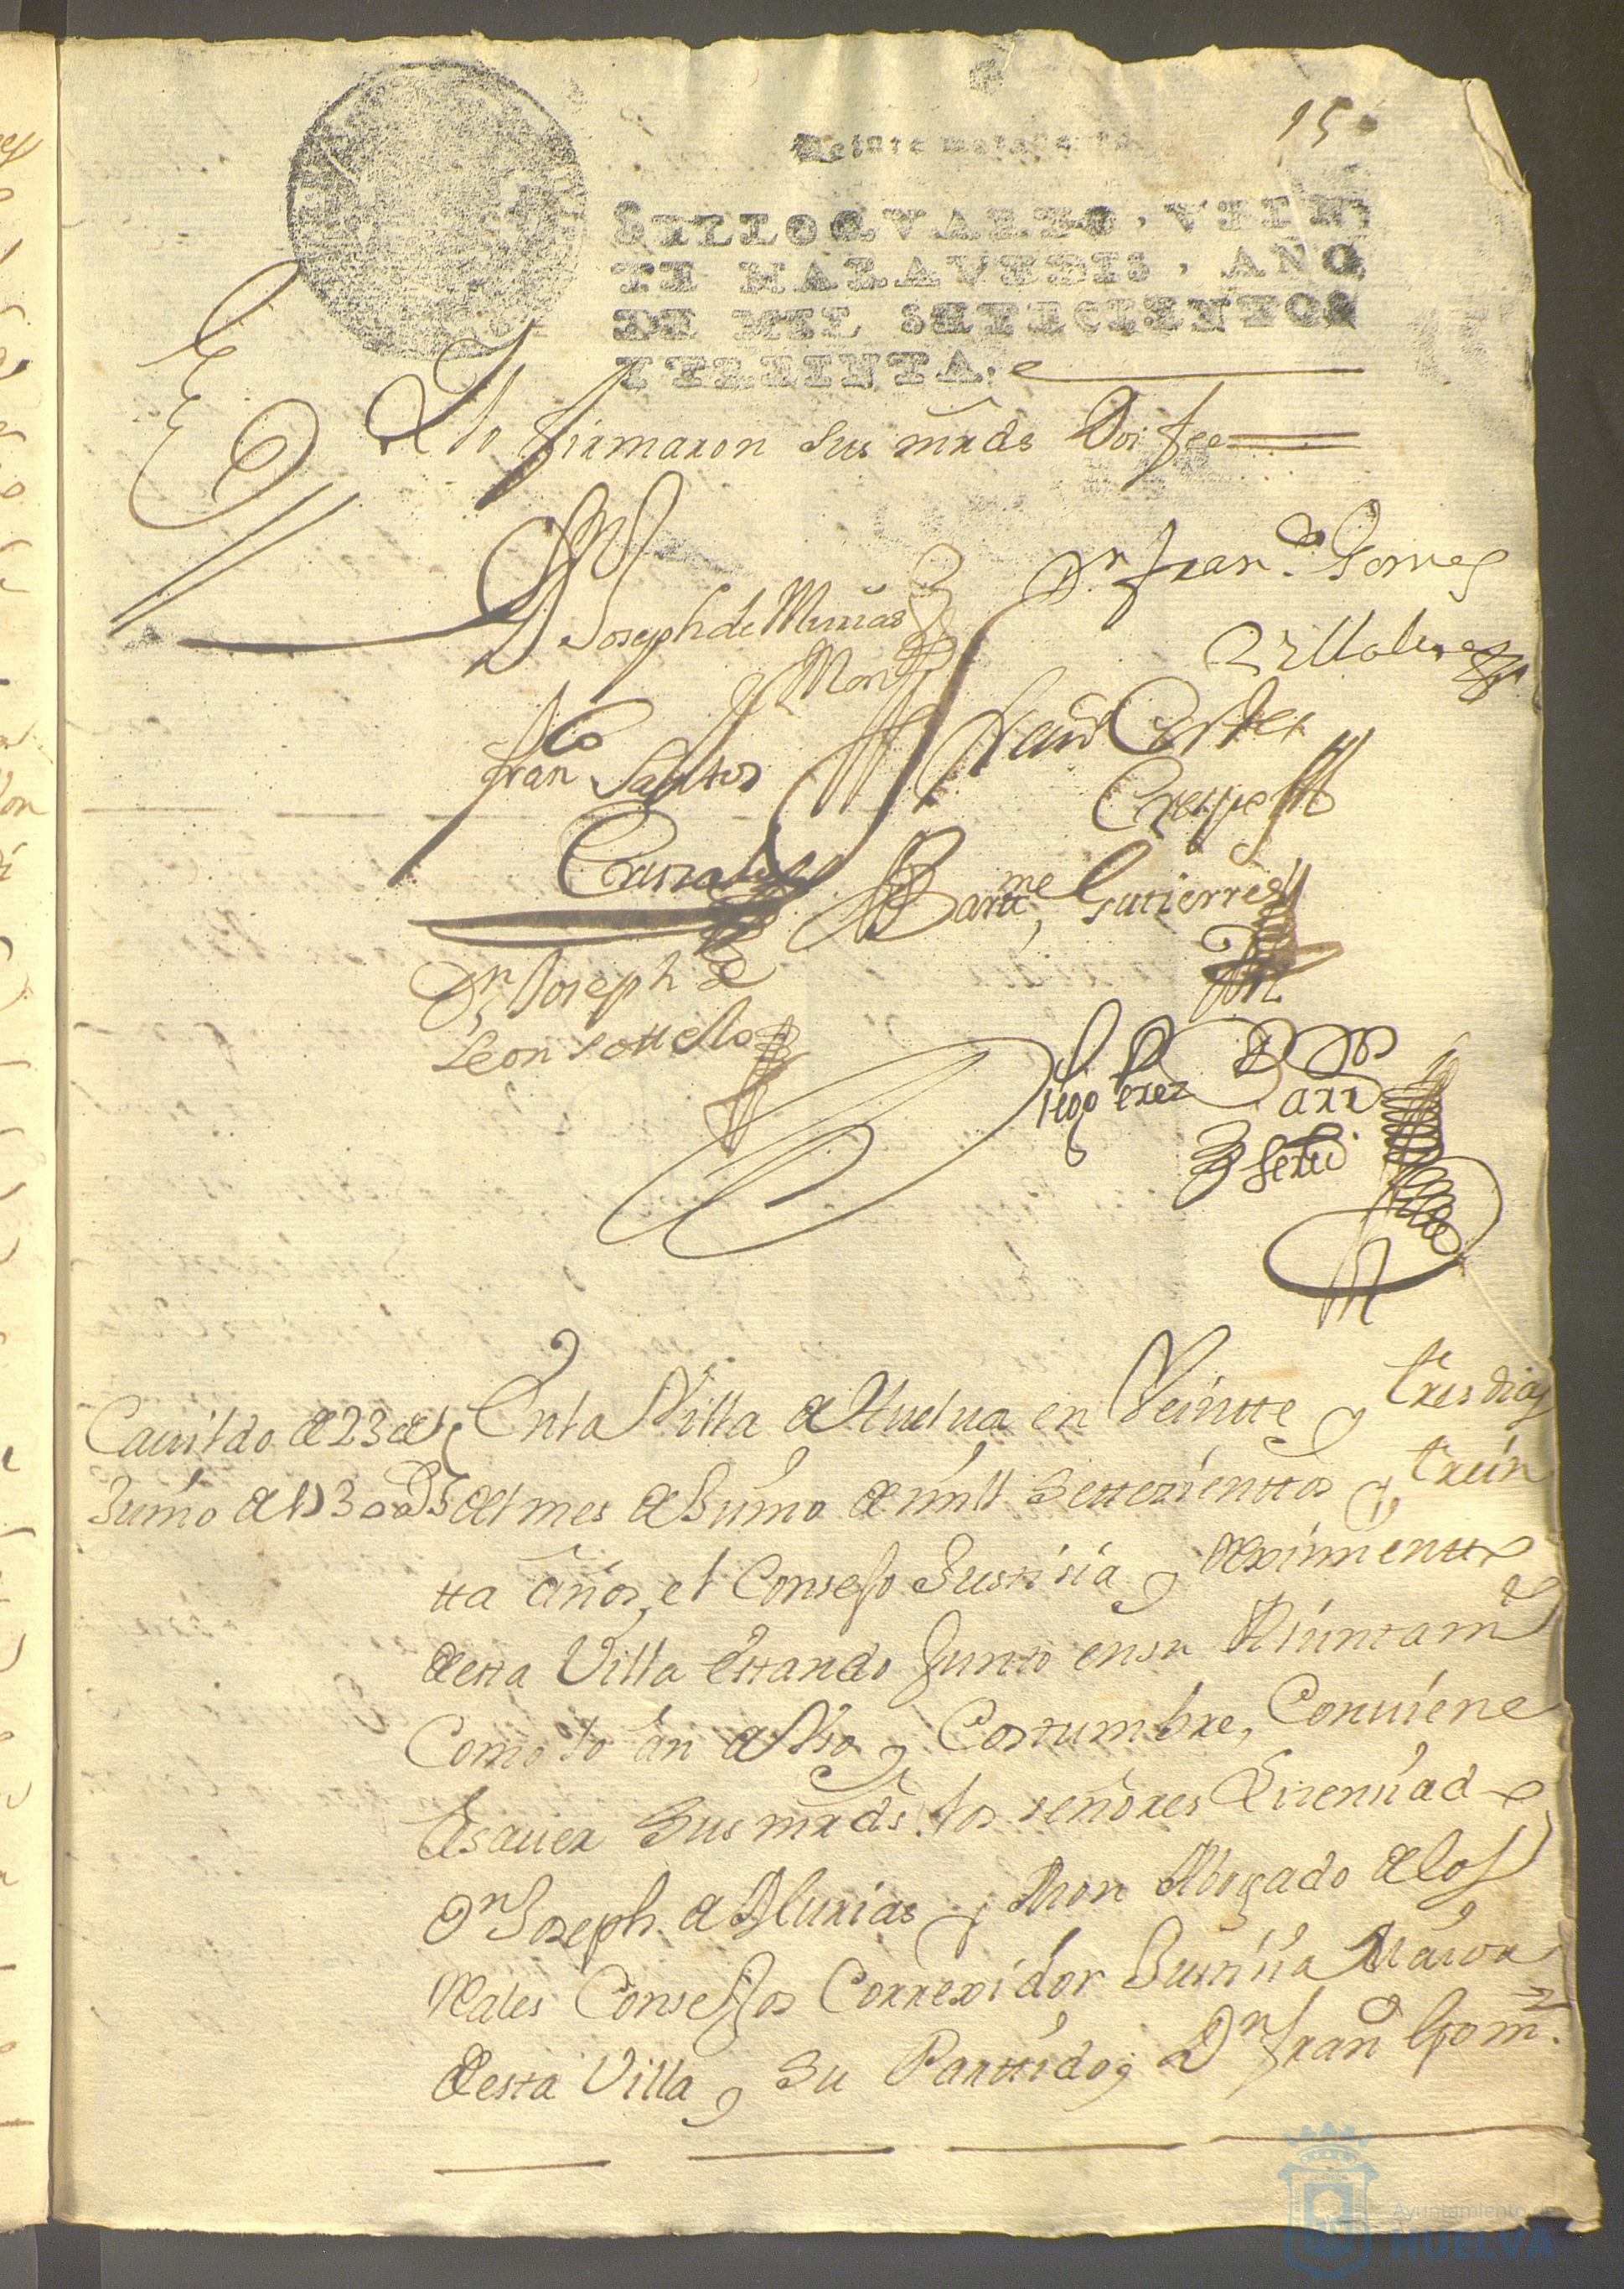 15
Veinte maravedis
SELLO QVARTO, VEIN
TE MARAVEDIS, AÑO
DE MIL SETECIENTOS
Y TREINTA.
Y lo firmaron sus mrds Doi fee
Dn Joseph de Murias
y Mon
Dn Franco Gomes
Villalu
Franco Santos
Franco Cortes
Crespo
Bartme Gutierres
Dn Joseph de
Leon Sottelo
Diego Perez
Essno
Cauildo de 23 de
Junio de 1730 as
En la Villa de Huelua en Veintte y tres dias
del mes de Junio de mill settezienttos y trein
tta años, el Consejo Justisia y Reximientto
desta Villa estando Junto en su Aiuntamto
Como lo an de Vso y Costumbre, Conuiene
asauer sus mrds los señores Lizenziado
Dn Joseph de Murias y Mon Abogado de los
Reales Consejos Correxidor Justizia Maior
desta Villa y su Parttido, Dn Franco Gomz
Ayuntamiento de
HUELVA